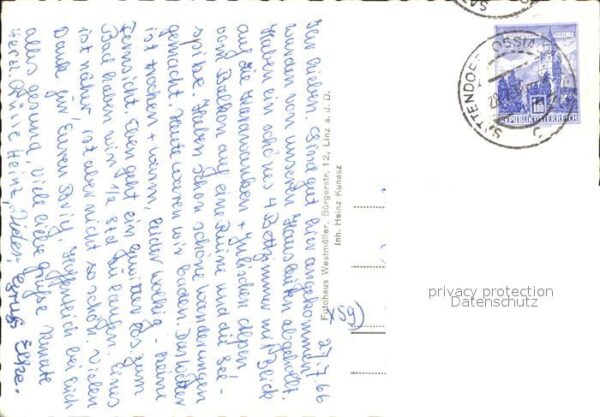 27.7.66
Ihr Lieben. Sind gut hier angekommen,
wurden von unseren Hausleuten abgeholt.
Haben ein schönes 4 Bettzimmer mit Blick
auf die Karawanken + Julischen Alpen
vom Balkon auf eine Ruine und die
spitze. Haben schon schöne Wanderungen
gemacht. Heute waren wir baden. Das Wetter
ist trocken + warm, leider wolkig - keine
Fernsicht. Eben geht ein Gewitter los. Zum
Bad haben wir 1/2 Std zu laufen. Eines
ist näher, ist aber nicht so schön. Vielen
Dank für Euren Brief. Hoffentlich bei Euch
alles gesund. Viele liebe Grüße Renate
Herzl. Grüße Heinz, Dieter
Gruß Elke.
Fotohaus Westmüller, Bürgerstr. 12, Linz a. d. D.
Inh. Heinz Kunasz
x59)
SATTENDORF
OSSIA
REPUBLIK ÖSTERREICH
privacy protection
Datenschutz